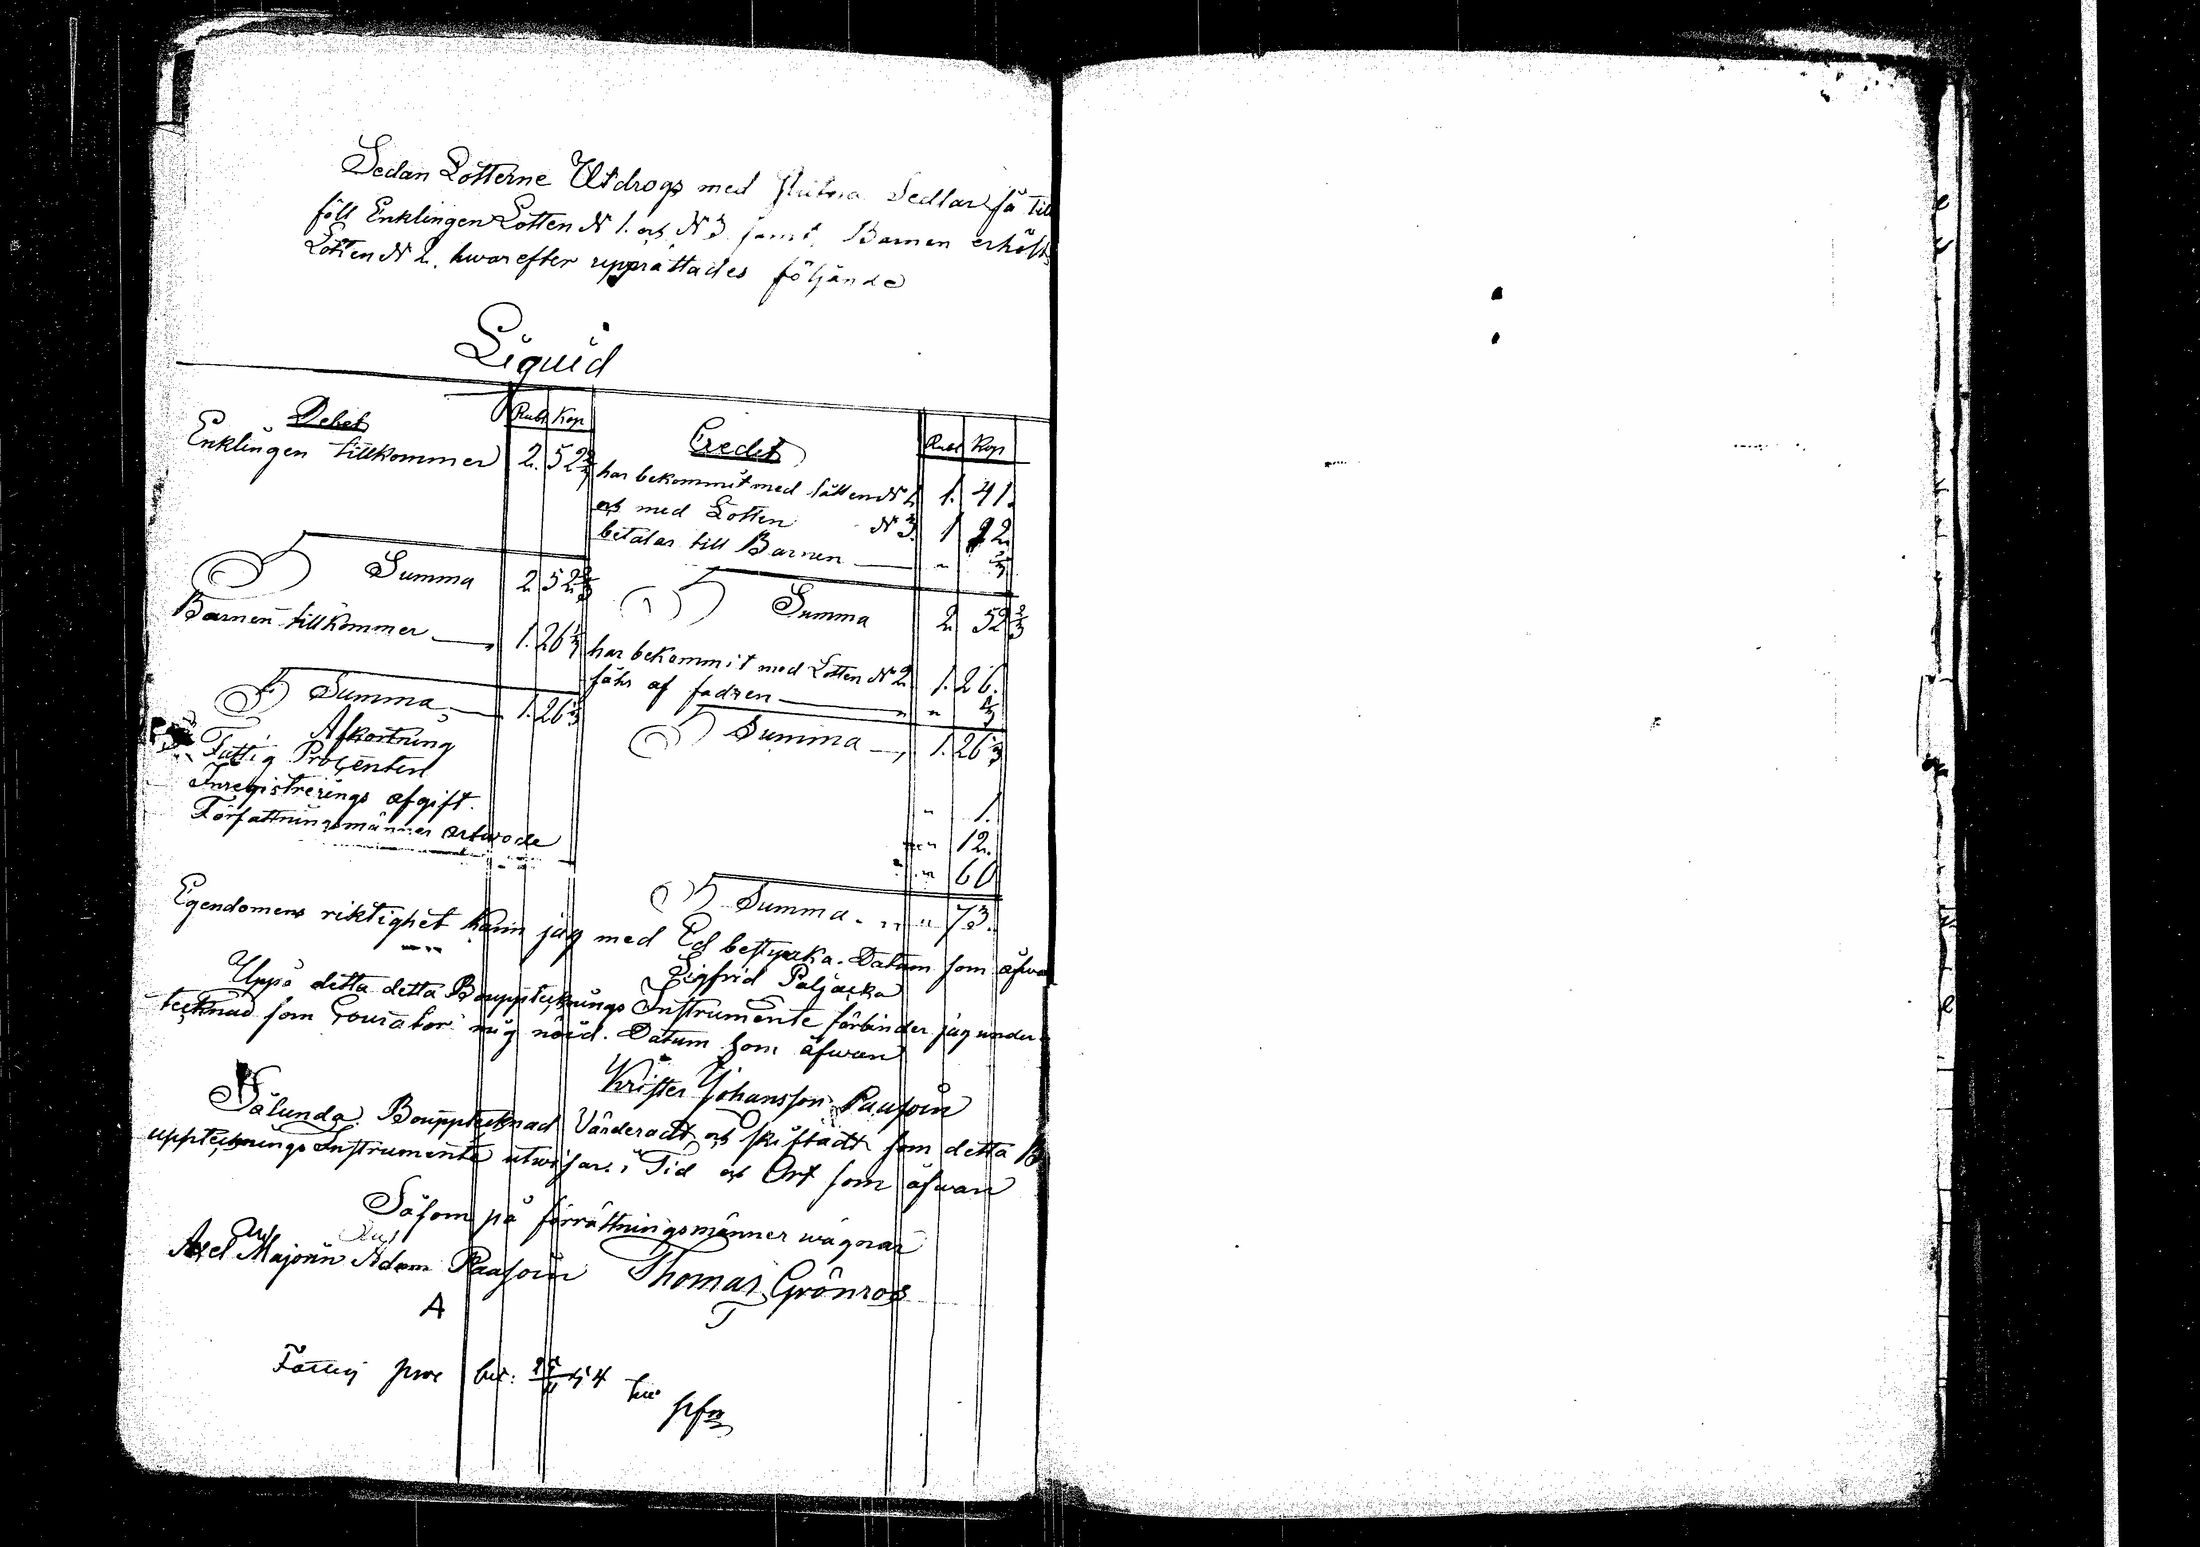 Sedan Lotterne Utdrogs med slutna Sedlar så till
föll Enklingen Lotten N 1. och N 3 samt Barnen erhölt
Lotten N 2. hwarefter upprättades följande
Liquid
Debet Rubl Kop Credet Rubl Kop
Enklingen tillkommer 2. 52 2/3 har bekommit med Lotten N 1. 1. 41.
och med Lotten N 3. 1 12.
betalar till Barnen " 1/3
Summa 2 52 2/3 Summa 2. 52 2/3
Barnen tillkommer 1. 26 1/3 har bekommit med Lotten N 2 1. 26.
fåhr af fadren " " 1/3
Summa 1. 26 1/3 Summa 1. 26 1/3
Afkortning
Fattig Procenten " 1.
Inregistrerings afgift. " 12.
Författningsmänner arwode " 60
Summa " 73.
Egendomens riktighet kann jag med Ed bestyrka. Datum som åfwan
Sigfrid Paljacka
Uppå detta detta Boupptecknings Instrumente förbinder jag under-
tecknad som Courator mig nöid. Datum som åfwan
Krister Johansson Paasoin
Sålunda Bouppteknad Värderadt och skiftadt som detta B
upptecknings Instrumente utwisar. i Tid och Ort som åfwan
Såsom på förrättningsmänner wägnar
Axel Majoin Adam Paasoin Thomas Grönroos
A T
Fattig proc bet: